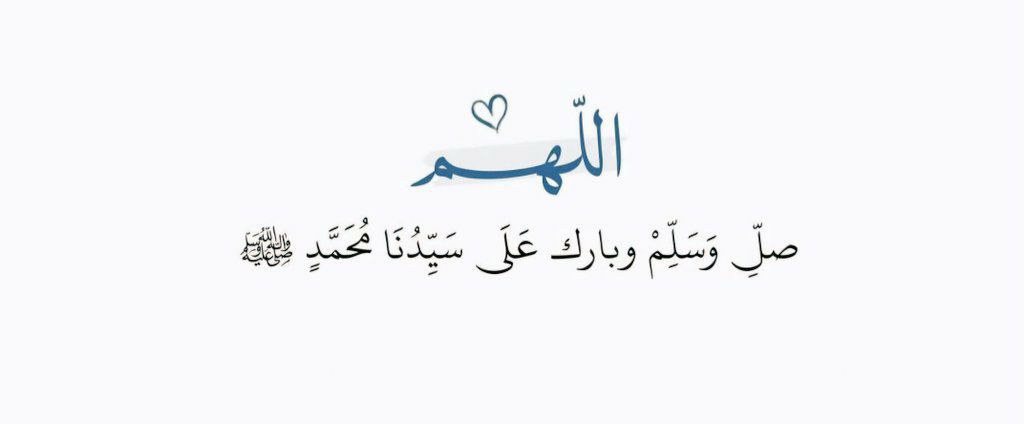 اللّهم
صلِّ وَسَلِّمْ وبارك عَلَى سَيِّدُنَا مُحَمَّدٍ ﷺ